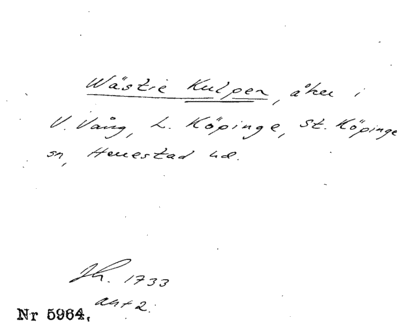 Wästre Kulpen, åker i
V. Vång, L. Köpinge, St. Köpinge
sn, Herrestad hd.
Jh. 1733
akt 2.
Nr 5964.